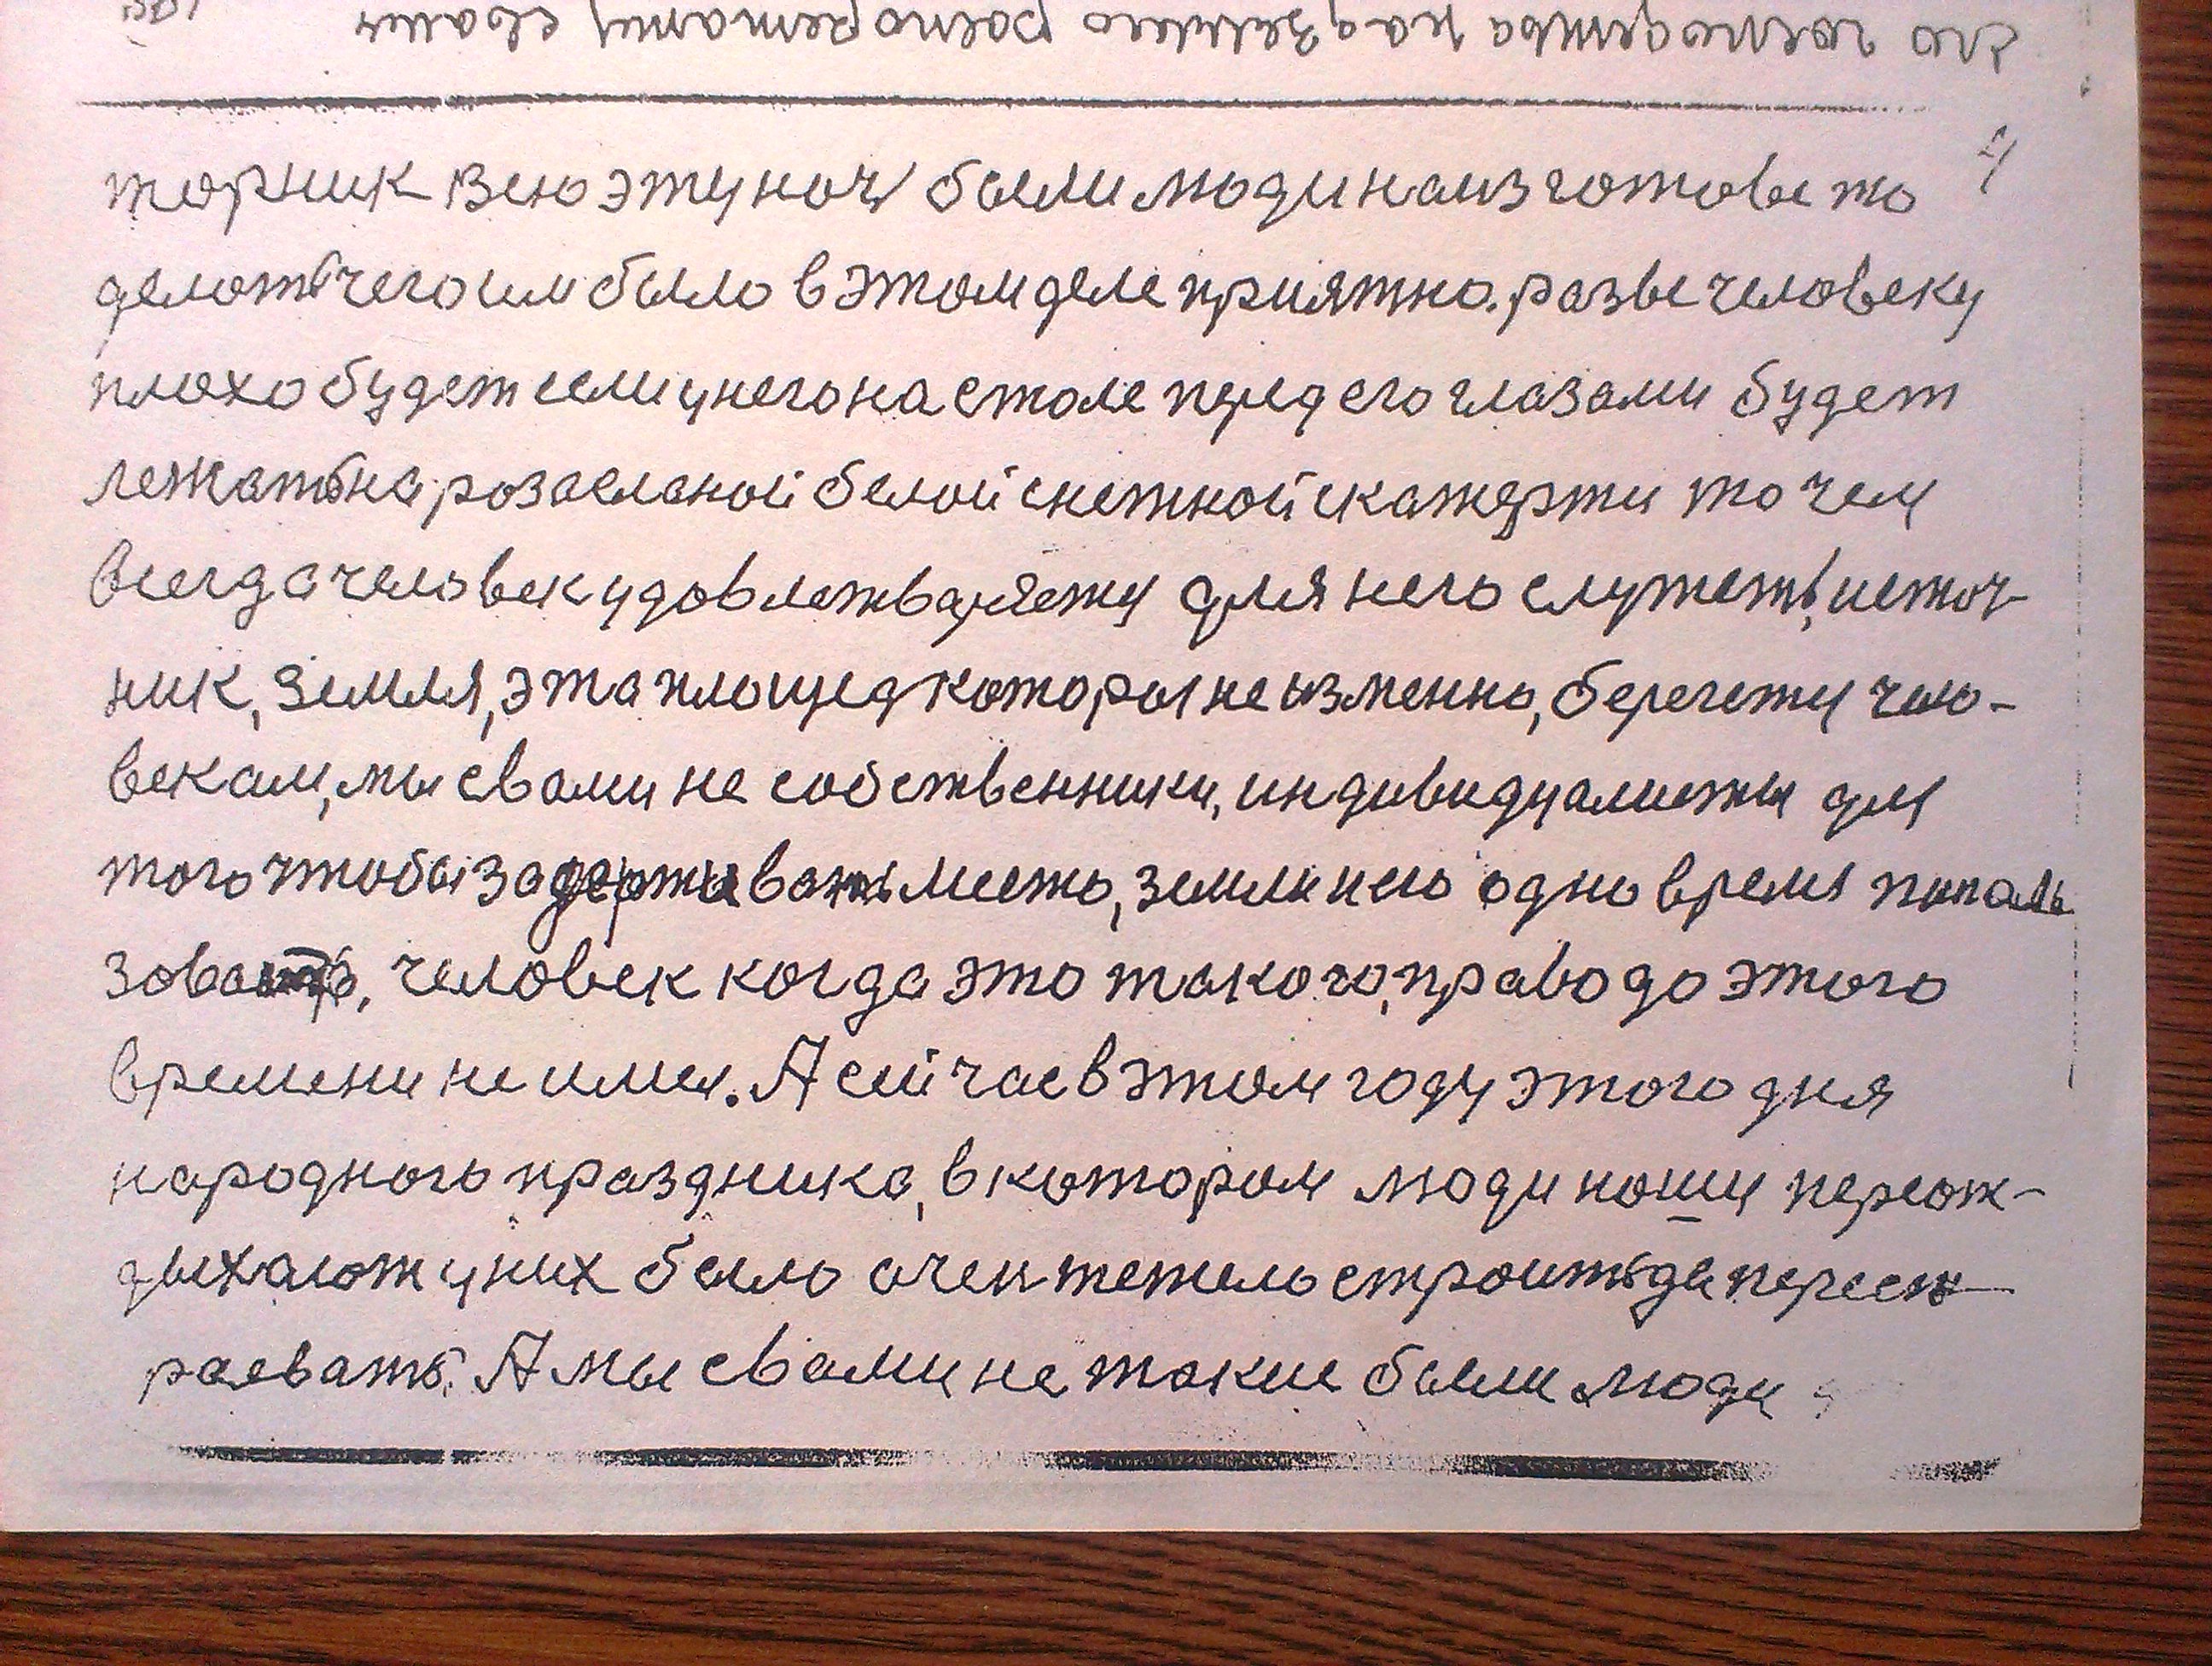 торник всю эту ноч были люди наизготове то
делоть чего им было в этом деле приятно. разве человеку
плохо будет если унего на столе перед его глазами будет
лежать на розасланой белой снежной скатерти то чем
всегда человек удовлетваряету для него служеть, источ-
ник, земля, эта площед которыя не изменно, берегету чело-
векам, мы свами не собственники, индивидуалисты для
того чтобы задерживать место, земли
одно время попаль
зовать, человек когда это такого, право до этого
времени не имел. А сейчас в этом году этого дня
народного праздника, в котором люди наши переот-
дыхают у них было очен тежело строить да перест-
раевать. А мы свами не такие были люди